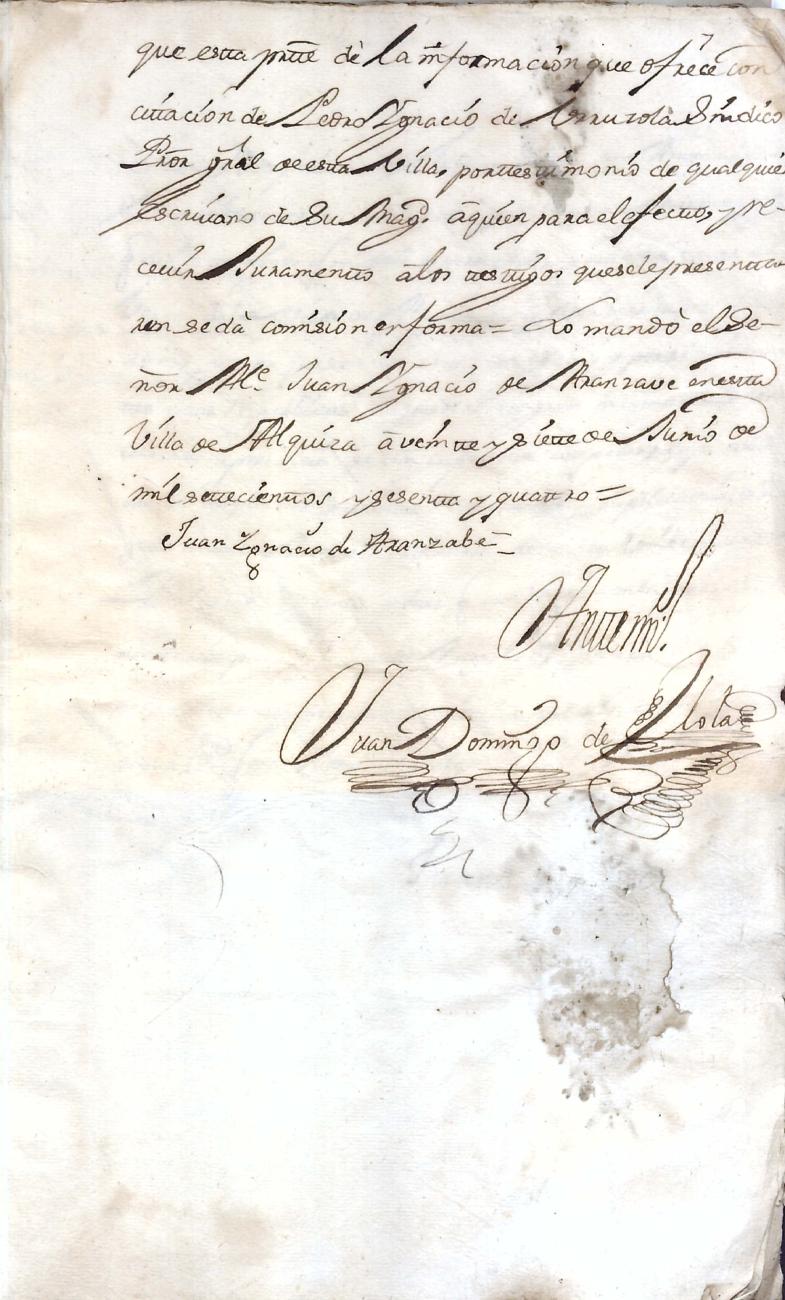 que estta prtte dè la informacion que ofrece con
cittacion de Pedro Ygnacio de Urruzola Sindico
Pror gral de estta Villa, por ttesttimonio de qualquier
escrivano de Su Magd. a quien para el efectto, y re-
cevir Juramentto a los ttesttigos que se le presentta-
ren se dà comision en forma = Lo mandò el Se-
ñor Alce. Juan Ygnacio de Aranzave en estta
Villa de Alquiza a veintte y siette de Junio de
mil settecienttos y sesentta y quattro =
Juan Ygnacio de Aranzabe
Antte mi.
Juan Domingo de